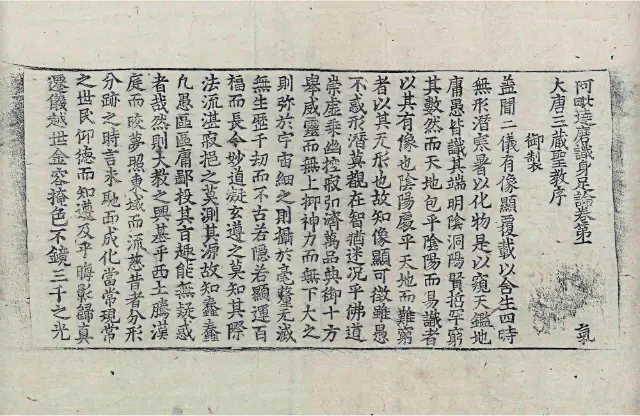 阿毗達磨識身足論卷第一　氣
大唐三藏聖教序
御製
蓋聞二儀有像顯覆載以含生四時
無形潛寒暑以化物是以窺天鑑地
庸愚皆識其端明陰洞陽賢哲罕窮
其數然而天地包乎陰陽而易識者
以其有像也陰陽處乎天地而難窮
者以其无形也故知像顯可徵雖愚
不惑形潛莫覩在智猶迷況乎佛道
崇虛乘幽控寂弘濟萬品典御十方
舉威靈而無上抑神力而無下大之
則弥於宇宙細之則攝於毫釐无滅
無生歷千劫而不古若隱若顯運百
福而長今妙道凝玄遵之莫知其際
法流湛寂挹之莫測其源故知蠢蠢
凡愚區區庸鄙投其旨趣能無疑惑
者哉然則大教之興基乎西土騰漢
庭而皎夢照東域而流慈昔者分形
分跡之時言未馳而成化當常現常
之世民仰德而知遵及乎晦影歸真
遷儀越世金容掩色不鏡三千之光